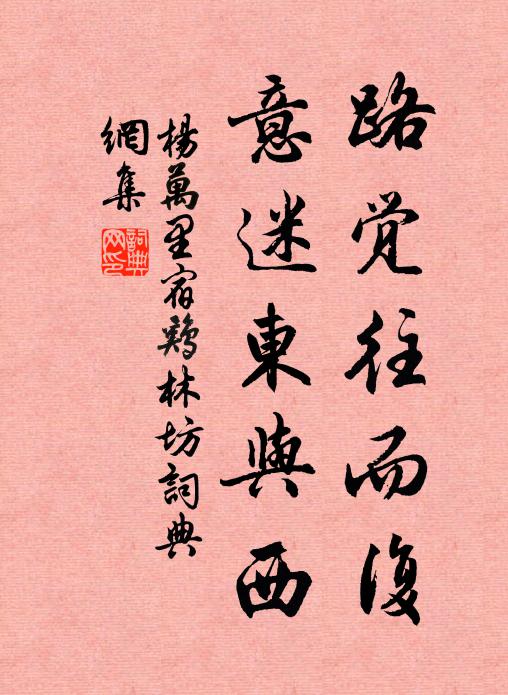 路覺往而復
意迷東與西
楊萬里宿鷄林坊詞典
網集
詞典
网印